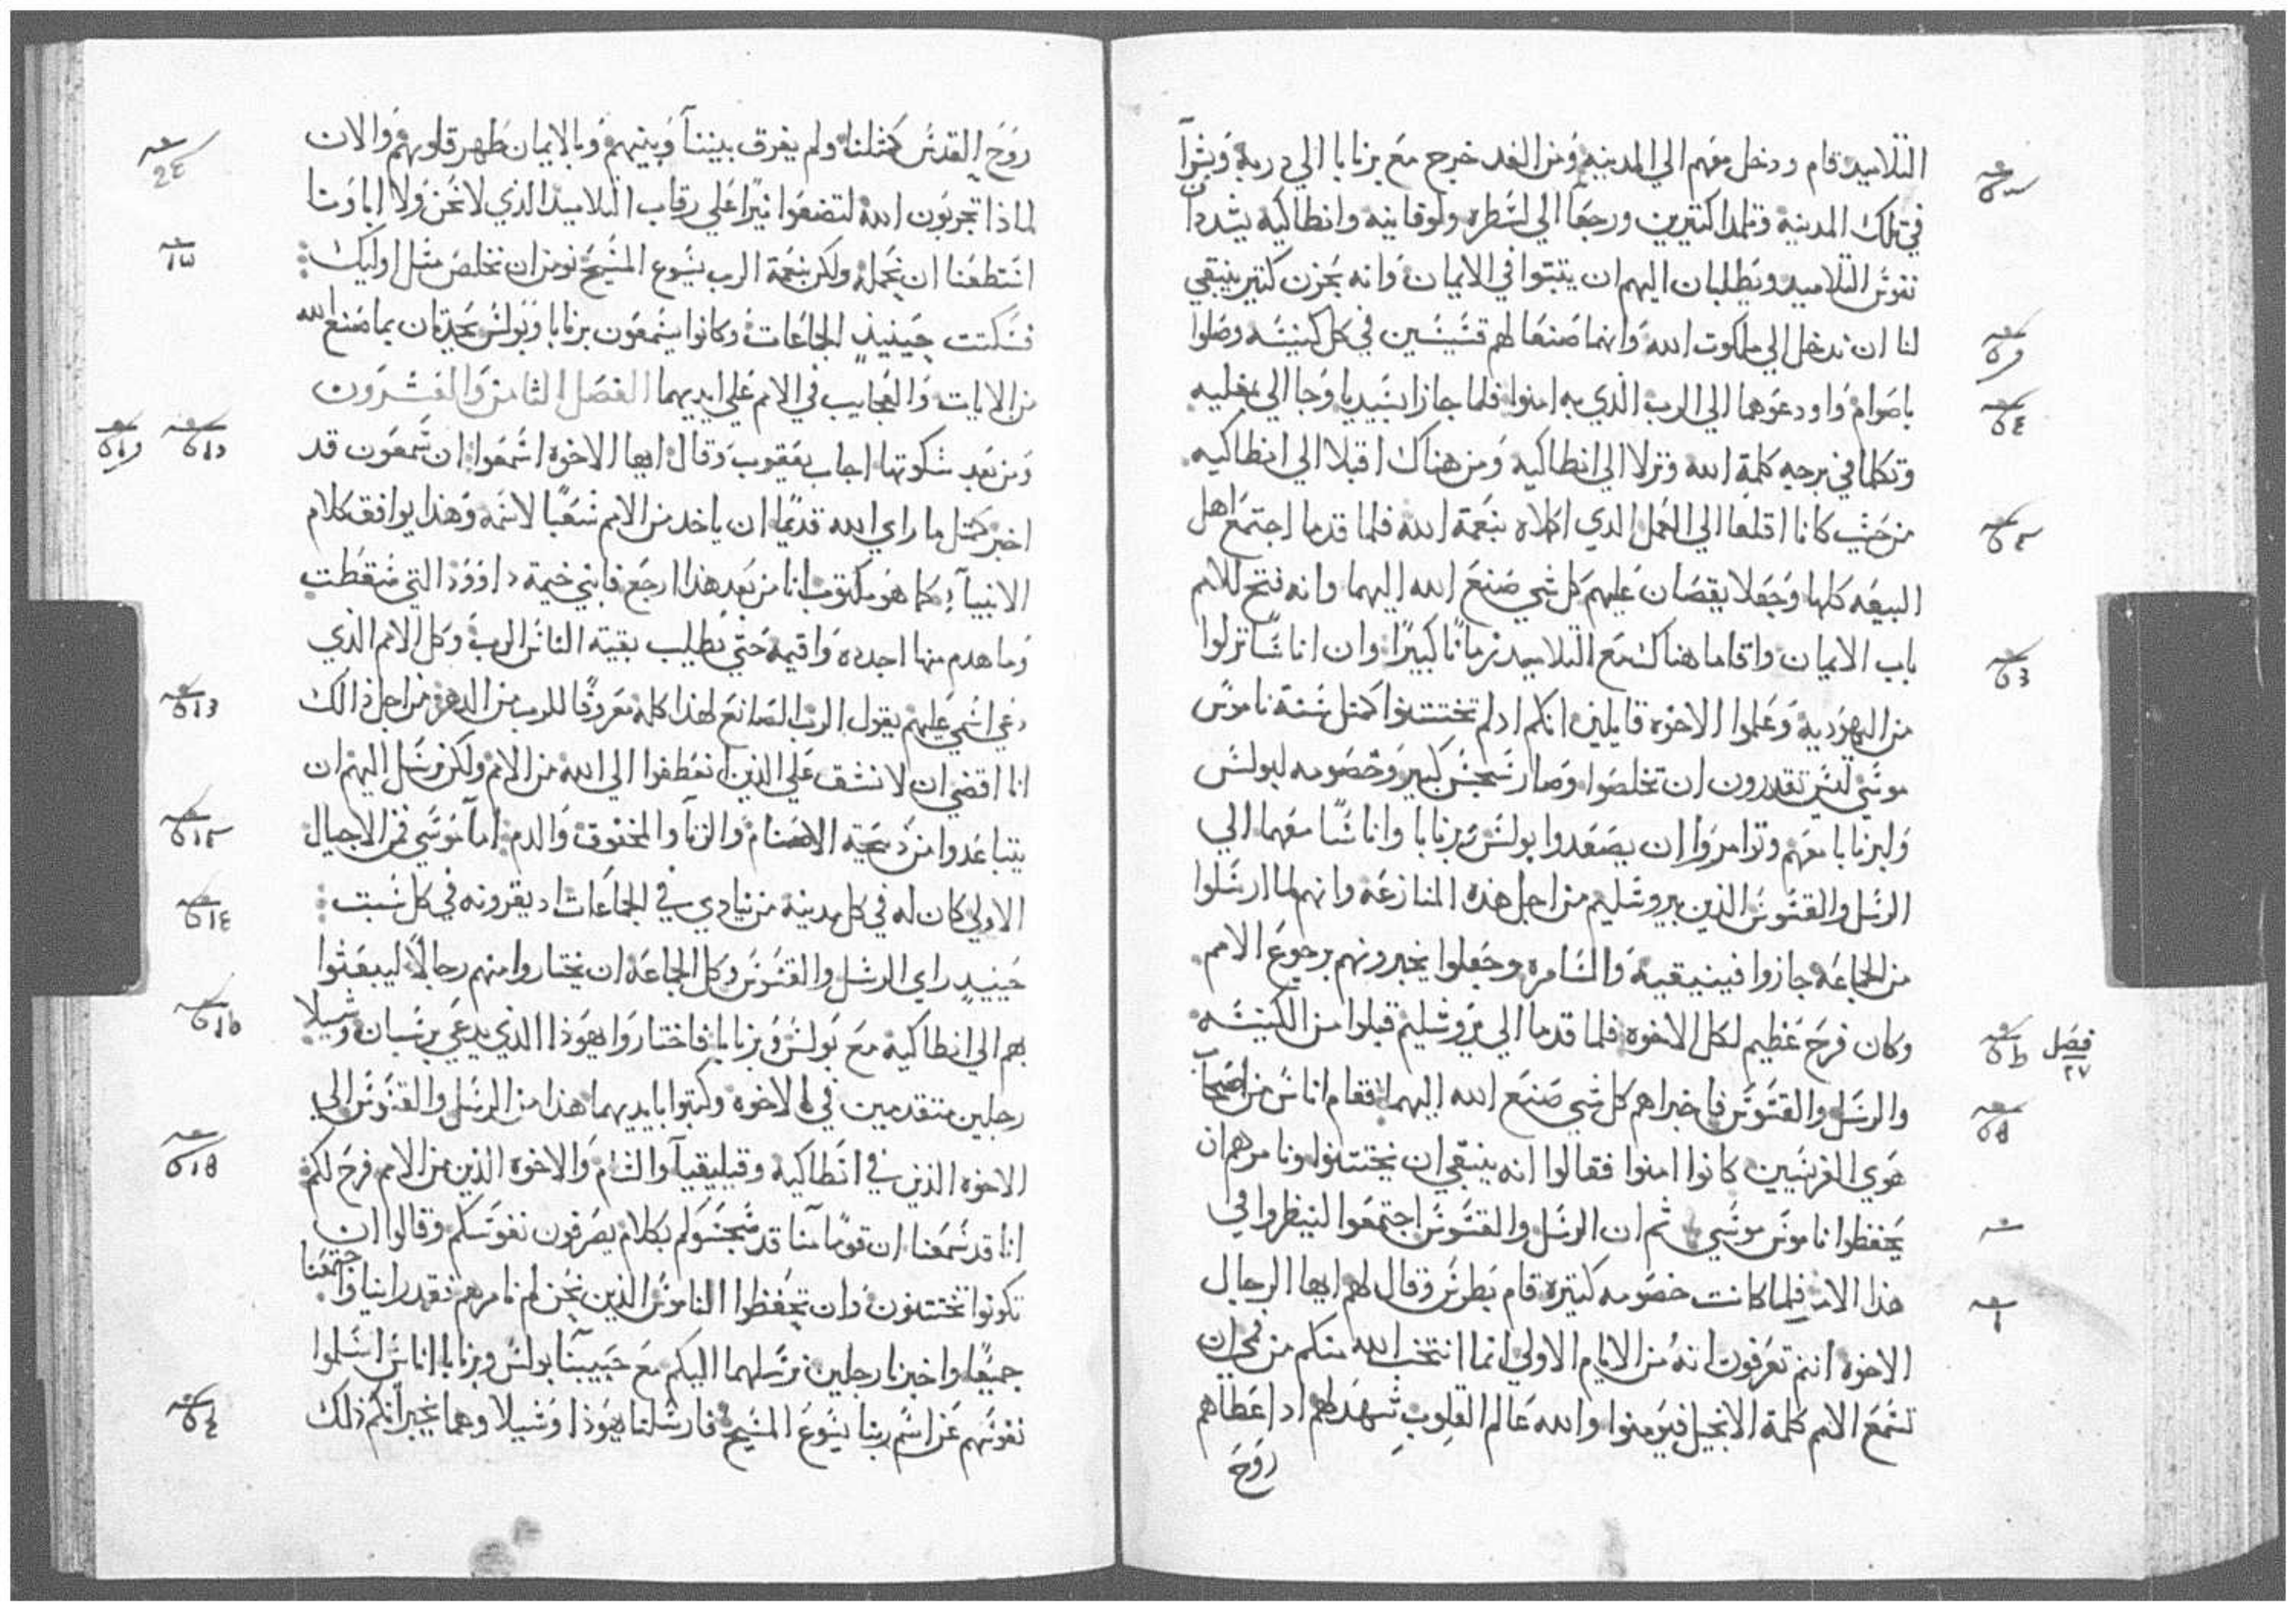 التلاميد قام ودخل معهم الي المدينه ومن الغد خرج مع برنابا الي دربه وبشرا
في تلك المدينة وتلمدا كتيرين ورجعا الي لسطره ولوقانيه وانطاكيه يشددان
نفوس التلاميد ويطلبان اليهم ان يتبتوا في الايمان وانه بحزن كتير ينبغي
لنا ان ندخل الي ملكوت الله وانهما صنعا لهم قسيسين في كل كنيسه وصلوا
باصوام واودعوهما الي الرب الذي به امنوا فلما جازا بسيديا وجا الي مغليه
وتكلما في برجه كلمة الله ونزلا الي انطاكيه ومن هناك اقبلا الي انطاكيه
من حيث كانا اقلعا الي العمل الدي اكملاه بنعمة الله فلما قدما اجتمع اهل
البيعه كلها وجعلا يقصان عليهم كل شي صنع الله اليهما وانه فتح للامم
باب الايمان واقاما هناك مع التلاميد زمانا كبيرا وان اناسا نزلوا
من اليهودية وعلموا الاخوه قايلين انكم ادلم تختتنوا كمتل سنة ناموس
موسي ليس تقدرون ان تخلصوا وصار سجس كبير وخصومه لبولس
ولبرنابا معهم وتوامروا ان يصعدوا بولس وبرنابا واناسا معهما الي
الرسل والقسوس الذين بيروشليم من اجل هذه المنازعه وانهم لما ارسلوا
من الجماعه جازوا فينيقيه والسامره وجعلوا يخبرونهم برجوع الامم
وكان فرح عظيم لكل الاخوه فلما قدما الي يروشليم قبلوا من الكنيسه
والرسل والقسوس فاخبراهم كل شي صنع الله اليهما فقام اناس من اصحاب
هوي الفريسيين كانوا امنوا فقالوا انه ينبغي ان يختتنوا ونامرهم ان
يحفظوا ناموس موسي ثم ان الرسل والقسوس اجتمعوا لينظروا في
هذا الامر فلما كانت خصومه كتيره قام بطرس وقال لهم ايها الرجال
الاخوه انتم تعرفون انه من الايام الاولي انما انتخب الله منكم من فمي ان
تسمع الامم كلمة الانجيل فيومنوا والله عالم القلوب شهد لهم اد اعطاهم
روح
فصل
٢٧
روح القدس كمثلنا ولم يفرق بيننا وبينهم وبالايمان طهر قلوبهم والان
لماذا تجربون الله لتضعوا نيرا علي رقاب التلاميذ الذي لا نحن ولا اباونا
استطعنا ان نحمله ولكن بنعمة الرب يسوع المسيح نومن ان نخلص مثل اوليك
فسكتت حينيذ الجماعات وكانوا يسمعون برنابا وبولس يحدتان بما صنع الله
من الايات والعجايب في الامم علي ايديهما الفصل الثامن والعشرون
ومن بعد سكوتها اجاب يعقوب وقال ايها الاخوه اسمعوا ان سمعون قد
اخبر كمتل ما راي الله قديما ان ياخد من الامم شعبا لاسمه وهذا يوافق كلام
الانبياء كما هو مكتوب انا من بعد هذا ارجع فابني خيمة داوود التي سقطت
وما هدم منها اجدده واقيمه حتي يطلب بقية الناس الرب وكل الامم الذي
دعي اسمي عليهم يقول الرب الصانع لهذا كله معروفا للرب من الدهر من اجل ذالك
انا اقضي ان لا نشق علي الذين انعطفوا الي الله من الامم ولكن نرسل اليهم ان
يتباعدوا من دبيحة الاصنام والزنا والمخنوق والدم اما موسي فمن الاجيال
الاولي كان له في كل مدينه من ينادي في الجماعات اد يقرونه في كل سبت
حينيد راي الرسل والقسوس وكل الجماعه ان يختاروا منهم رجالا ليبعثوا
بهم الي انطاكيه مع بولس وبرنابا فاختاروا يهوذا الذي يدعي برسبان وشيلا
رجلين متقدمين في الاخوه وكتبوا بايديهما هذا من الرسل والقسوس الي
الاخوه الذين في انطاكيه وقيليقيا والشام والاخوه الذين من الامم فرح لكم
انا قد سمعنا ان قوما منا قد سجسوكم بكلام يصرفون نفوسكم وقالوا ان
تكونوا تختتنون وان تحفظوا الناموس الذين نحن لم نامرهم فقد راينا واجتمعنا
جميعا واخبرنا رجلين نرسلهما اليكم مع حبيبنا بولس وبرنابا اناس اسلموا
نفوسهم عن اسم ربنا يسوع المسيح فارسلنا يهوذا وشيلا وهما يخبرانكم ذلك